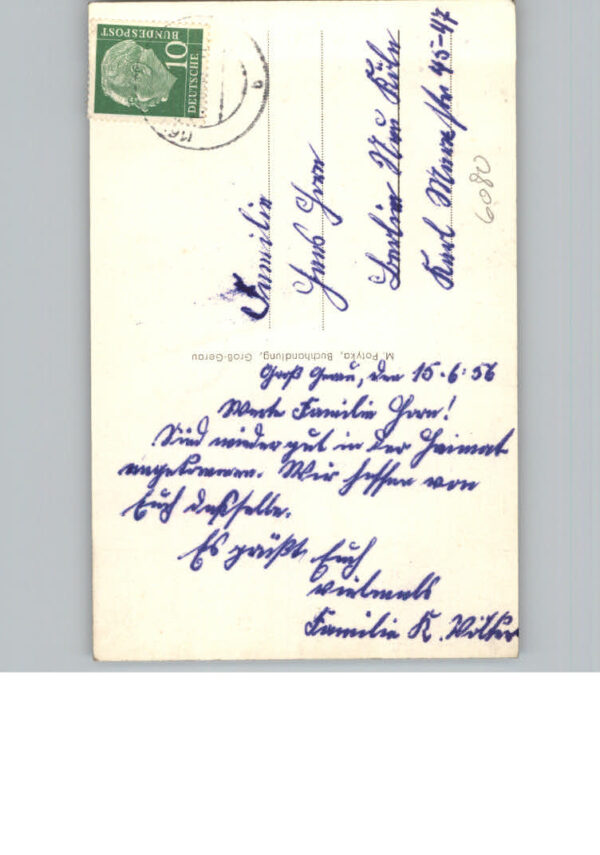 10
DEUTSCHE
BUNDESPOST
Familie
Hans Horn
Berlin Neu Köln
Karl Marx Str 45-47
6080
M. Potyka, Buchhandlung, Groß-Gerau
Groß Gerau, den 15.6.56
Werte Familie Horn!
Sind wieder gut in der Heimat
angekommen. Wir hoffen von
Euch dasselbe.
Es grüßt Euch
vielmals
Familie K.